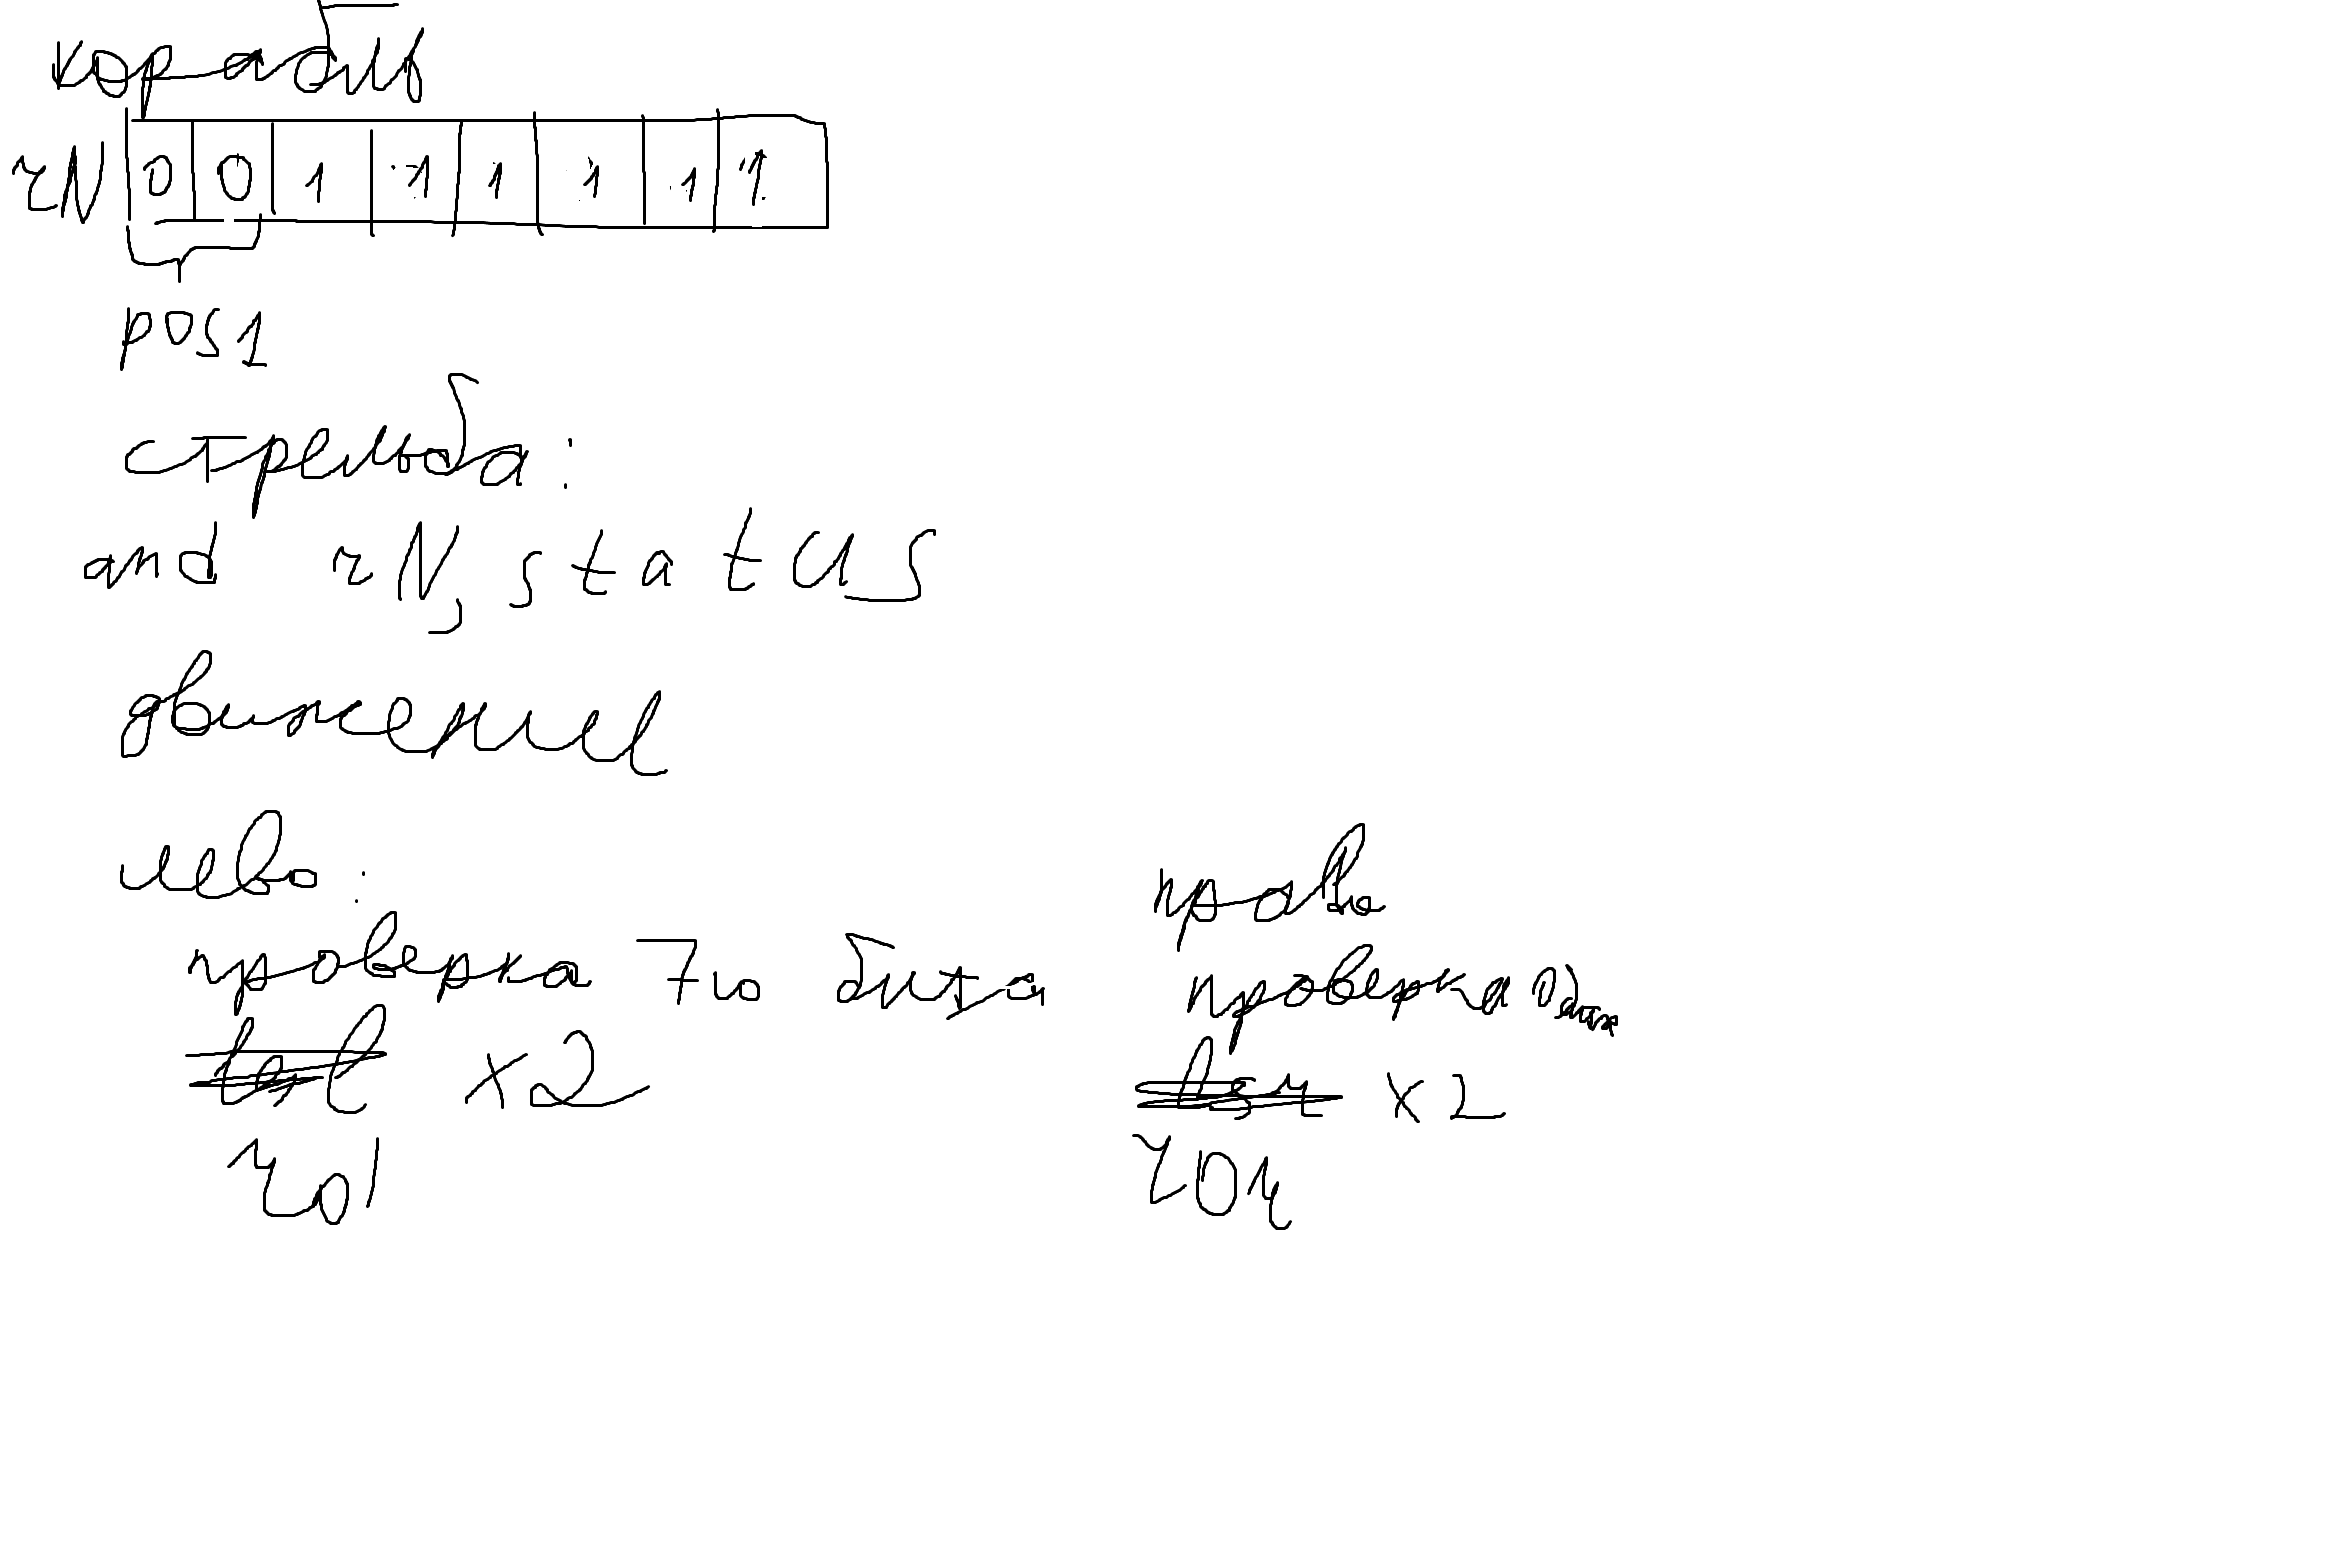 корабль
rN 0 0 1 1 1 1 1 1
pos1
стрельба:
and rN, status
движение
лево:
проверка 7го бита
lsl x2
rol
право
проверка 0 бита
lsr x2
ror